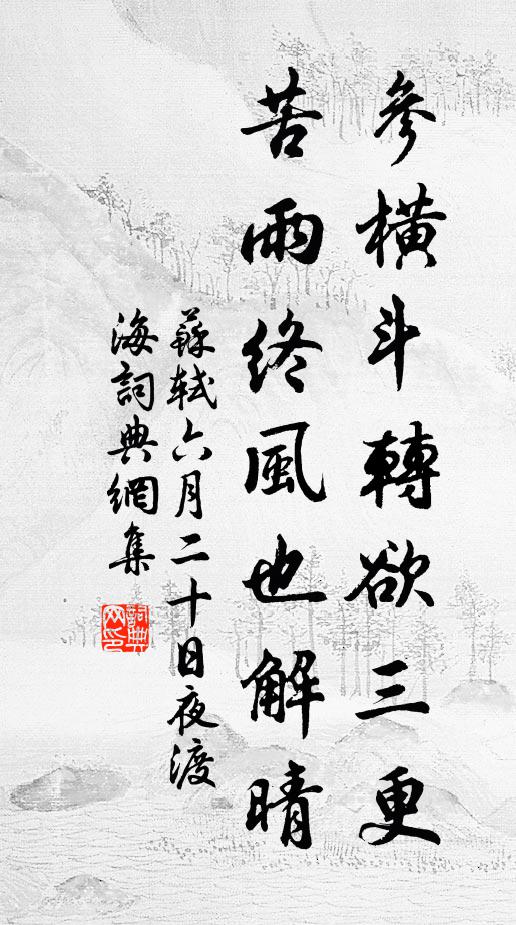 參橫斗轉欲三更
苦雨終風也解晴
蘇軾六月二十日夜渡
海詞典網集
詞典网印